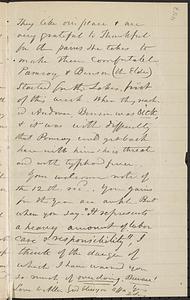 They like our place & are
very grateful & thankful
for the pains she takes to
make them comfortable.
Ramsay & Benson (the Elder)
Started for the Lakes, first
of this week. When they reach
ed Andover Benson was sick
& it was with difficulty
that Ramsay got back
here with him - his threat
end with typhoid fever.
Your welcome note of
the 12th rec. Your gains
for the year are ample. But
when you say "It represents
a heavy amount of labor
care & responsibility" I
think of the danger of
which I have warned you
so much of overdoing. Beware!
Love to All. God bless you